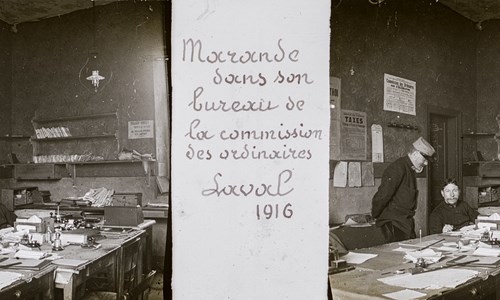 Marande
dans son
bureau de
la commission
des ordinaires
Laval
1916
TAXES